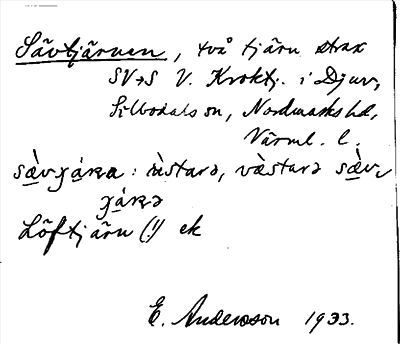 Sävtjärnen, två tjärn strax
SV+S V. Kroktj. i Djurv,
Silbodals sn, Nordmarks hd,
Värml. l.
sæ̀vɟáɴa: ùstarə, væ̀starə sæ̀v-
Löftjärn (!) ek
E. Andersson 1933.